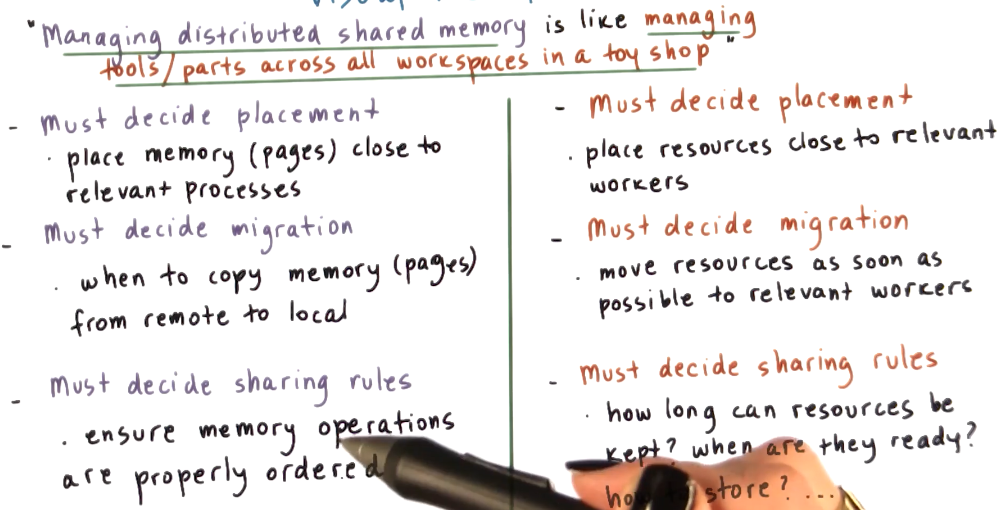 "Managing distributed shared memory is like managing
tools/parts across all workspaces in a toy shop"
- Must decide placement
· place memory (pages) close to
relevant processes
- Must decide migration
· when to copy memory (pages)
from remote to local
- Must decide sharing rules
· ensure memory operations
are properly ordered
- Must decide placement
· place resources close to relevant
workers
- Must decide migration
· move resources as soon as
possible to relevant workers
- Must decide sharing rules
· how long can resources be
kept? when are they ready?
store? ...